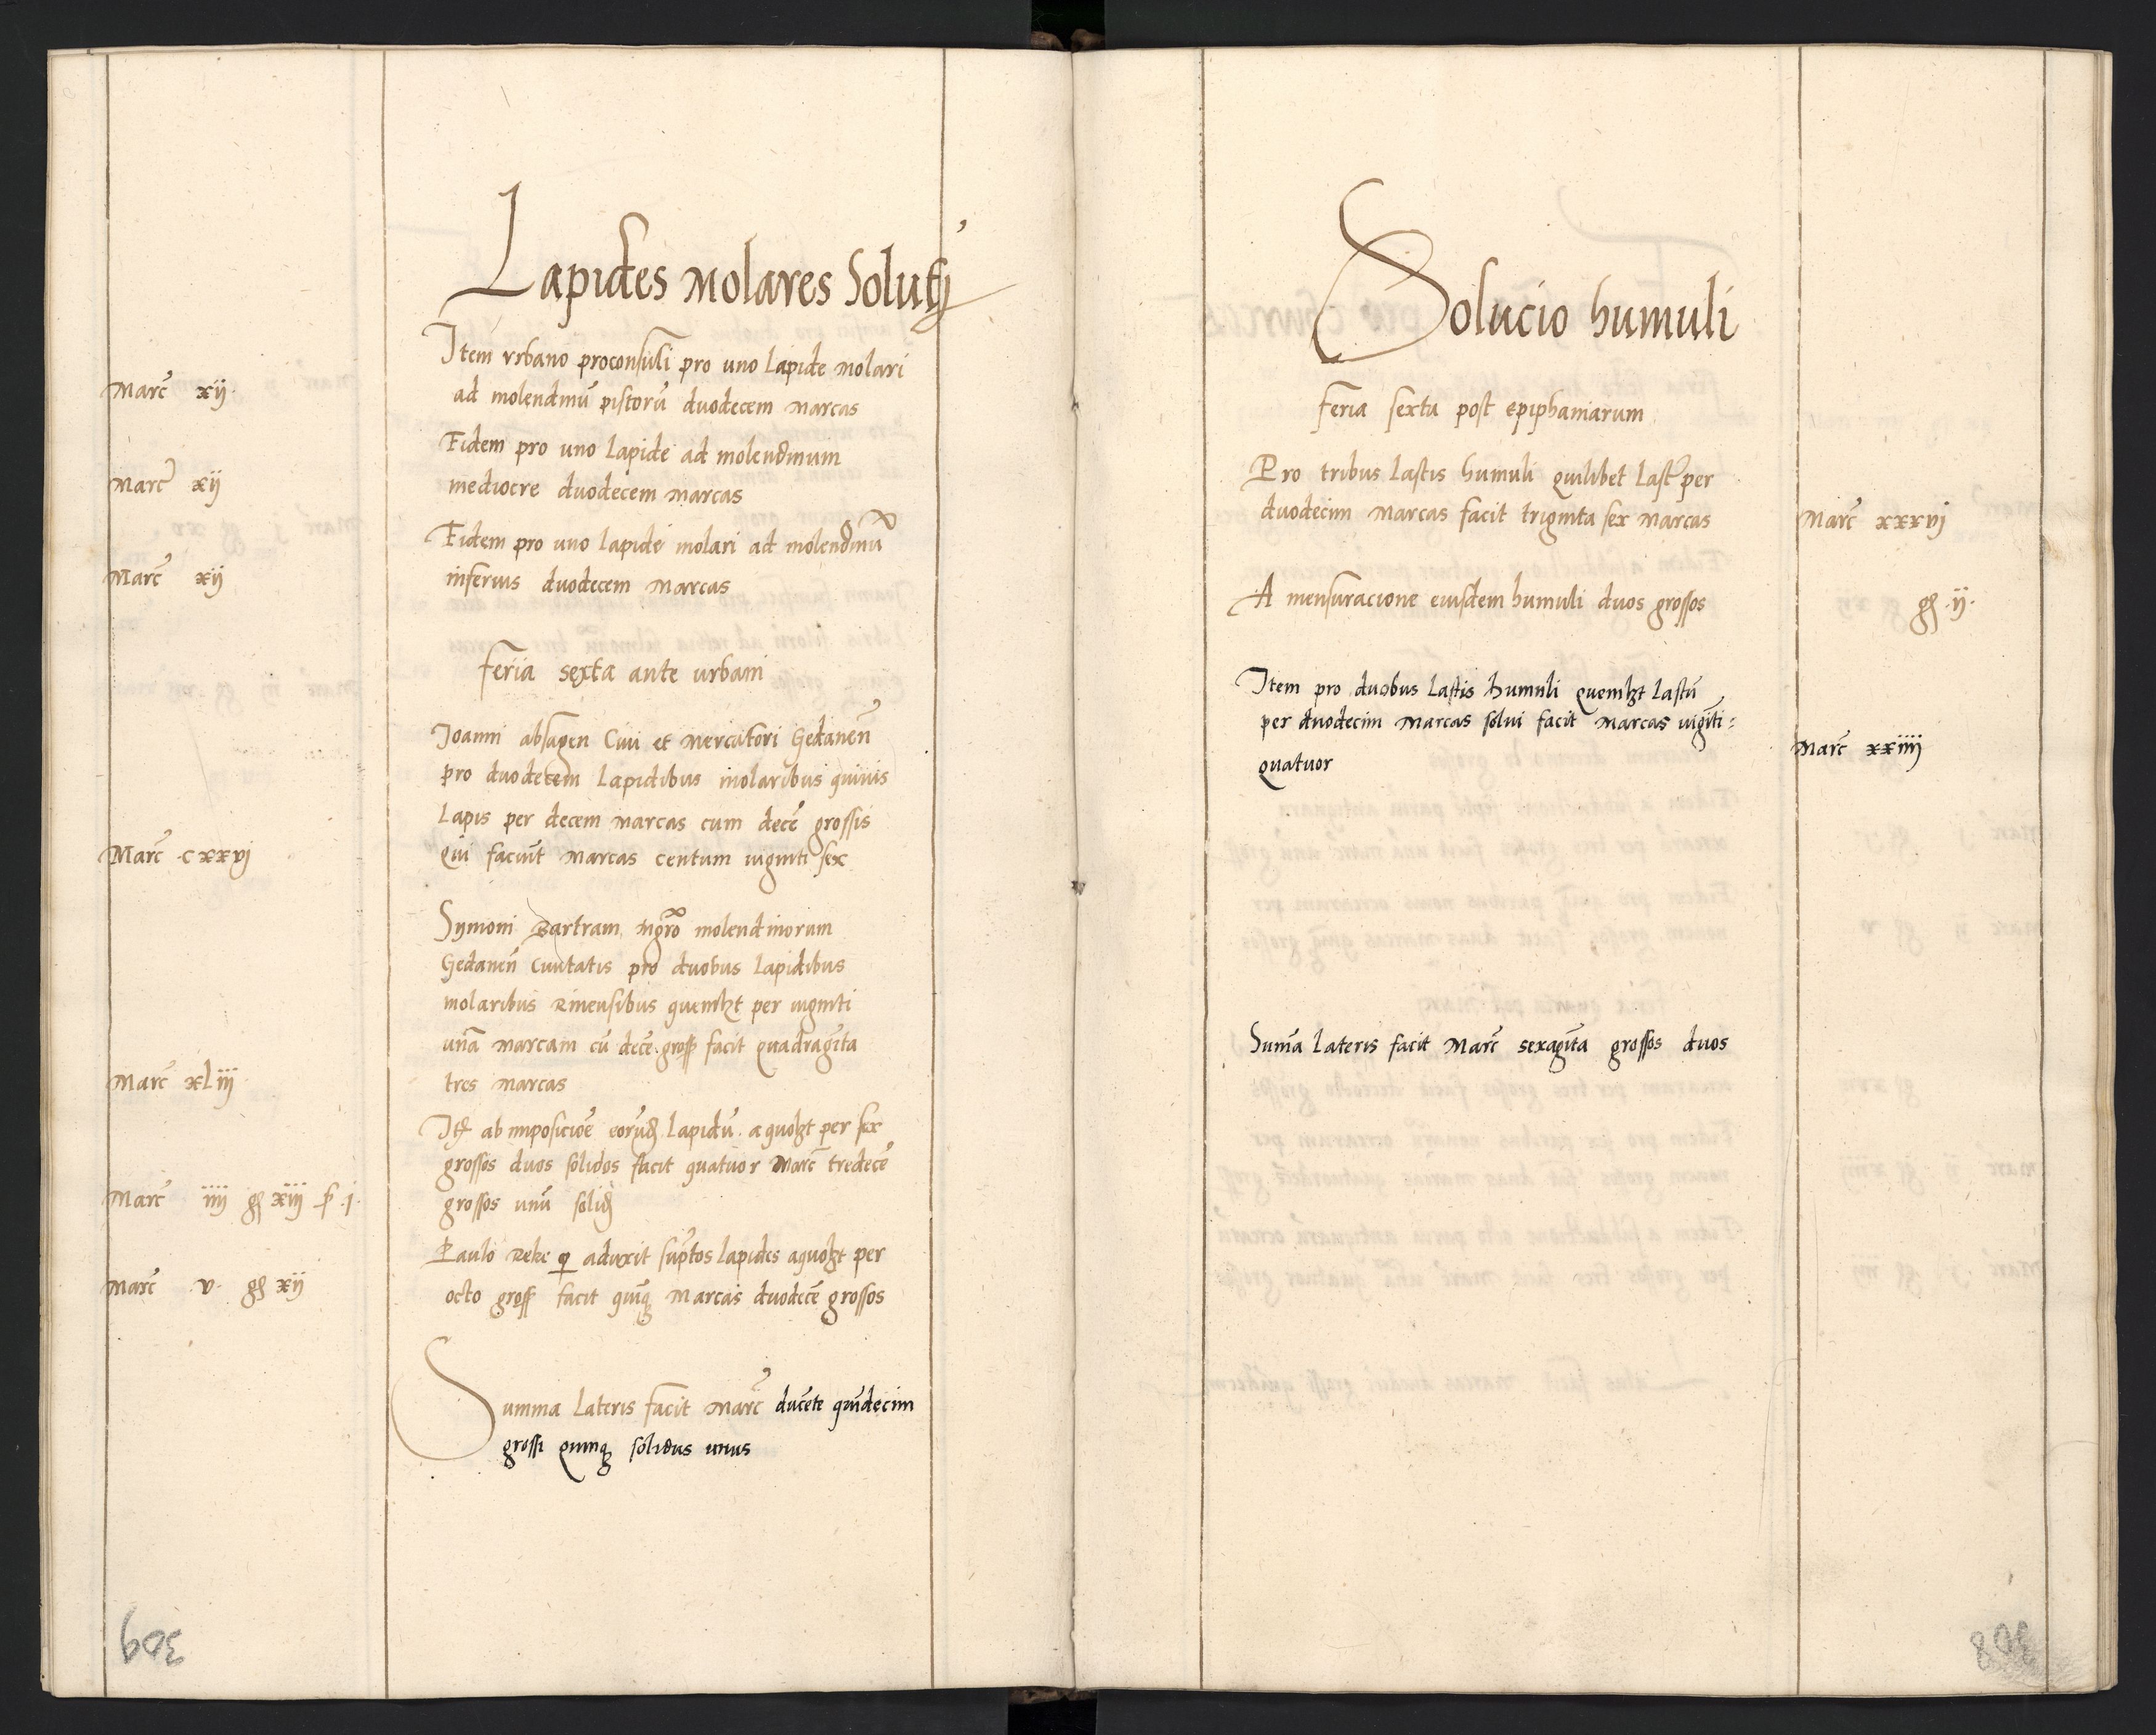 Lapides Molares Soluti
Item vrbano proconsuli pro uno Lapide molari
Marc̄ xij.
ad molendinū pistorū duodecem marcas
Eidem pro uno Lapide ad molendinum
Marc̄ xij
mediocre duodecem marcas
Eidem pro uno lapide molari ad molendinū
Marc̄ xij
inferius duodecem marcas
Feria sexta ante urbani
Joanni absagen Ciui et mercatori Gedanen̄
pro duodecem Lapidibus molaribus quiuis
Lapis per decem marcas cum decē grossis
Marc̄ .cxxvj
qui faciūt marcas centum uiginti sex
Symoni Bartram mgrō molendinorum
Gedanen̄ Ciuitatis pro duobus lapidibus
molaribus Rinensibus quemlꝫt per uiginti
unā marcam cū decē gross facit quadragīta
Marc̄ xLiij
tres marcas
Itē ab imposiciōe eorūd Lapidū a quolꝫt per sex
grossos duos solidos facit quatuor Marc̄ tredecē
Marc̄ iiij gꝭ xiij ꝭ .j.
grossos unū solid
Paulo Reke qͥ aduxit suptōs lapides a quolꝫt per
Marc̄ v. gꝭ xij
octo gross facit quīqꝫ Marcas duodecē grossos
Summa Lateris facit Marc̄ ducēte quīdecim
grossi quinqꝫ solidus unus
309
Solucio humuli
Feria sexta post epiphaniarum
Pro tribus Lastis humuli quilibet Last per
duodecim marcas facit triginta sex marcas
Marc̄ xxxvj
A mensuracione eiusdem humuli duos grossos
gꝭ .ij.
Item pro duobus Lastis humuli quemlꝫt lastū
per duodecim marcas solui facit marcas uigīti=
Marc̄ xxiiij
quatuor
Sum̄a Lateris facit Marc̄ sexagīta grossos duos
308